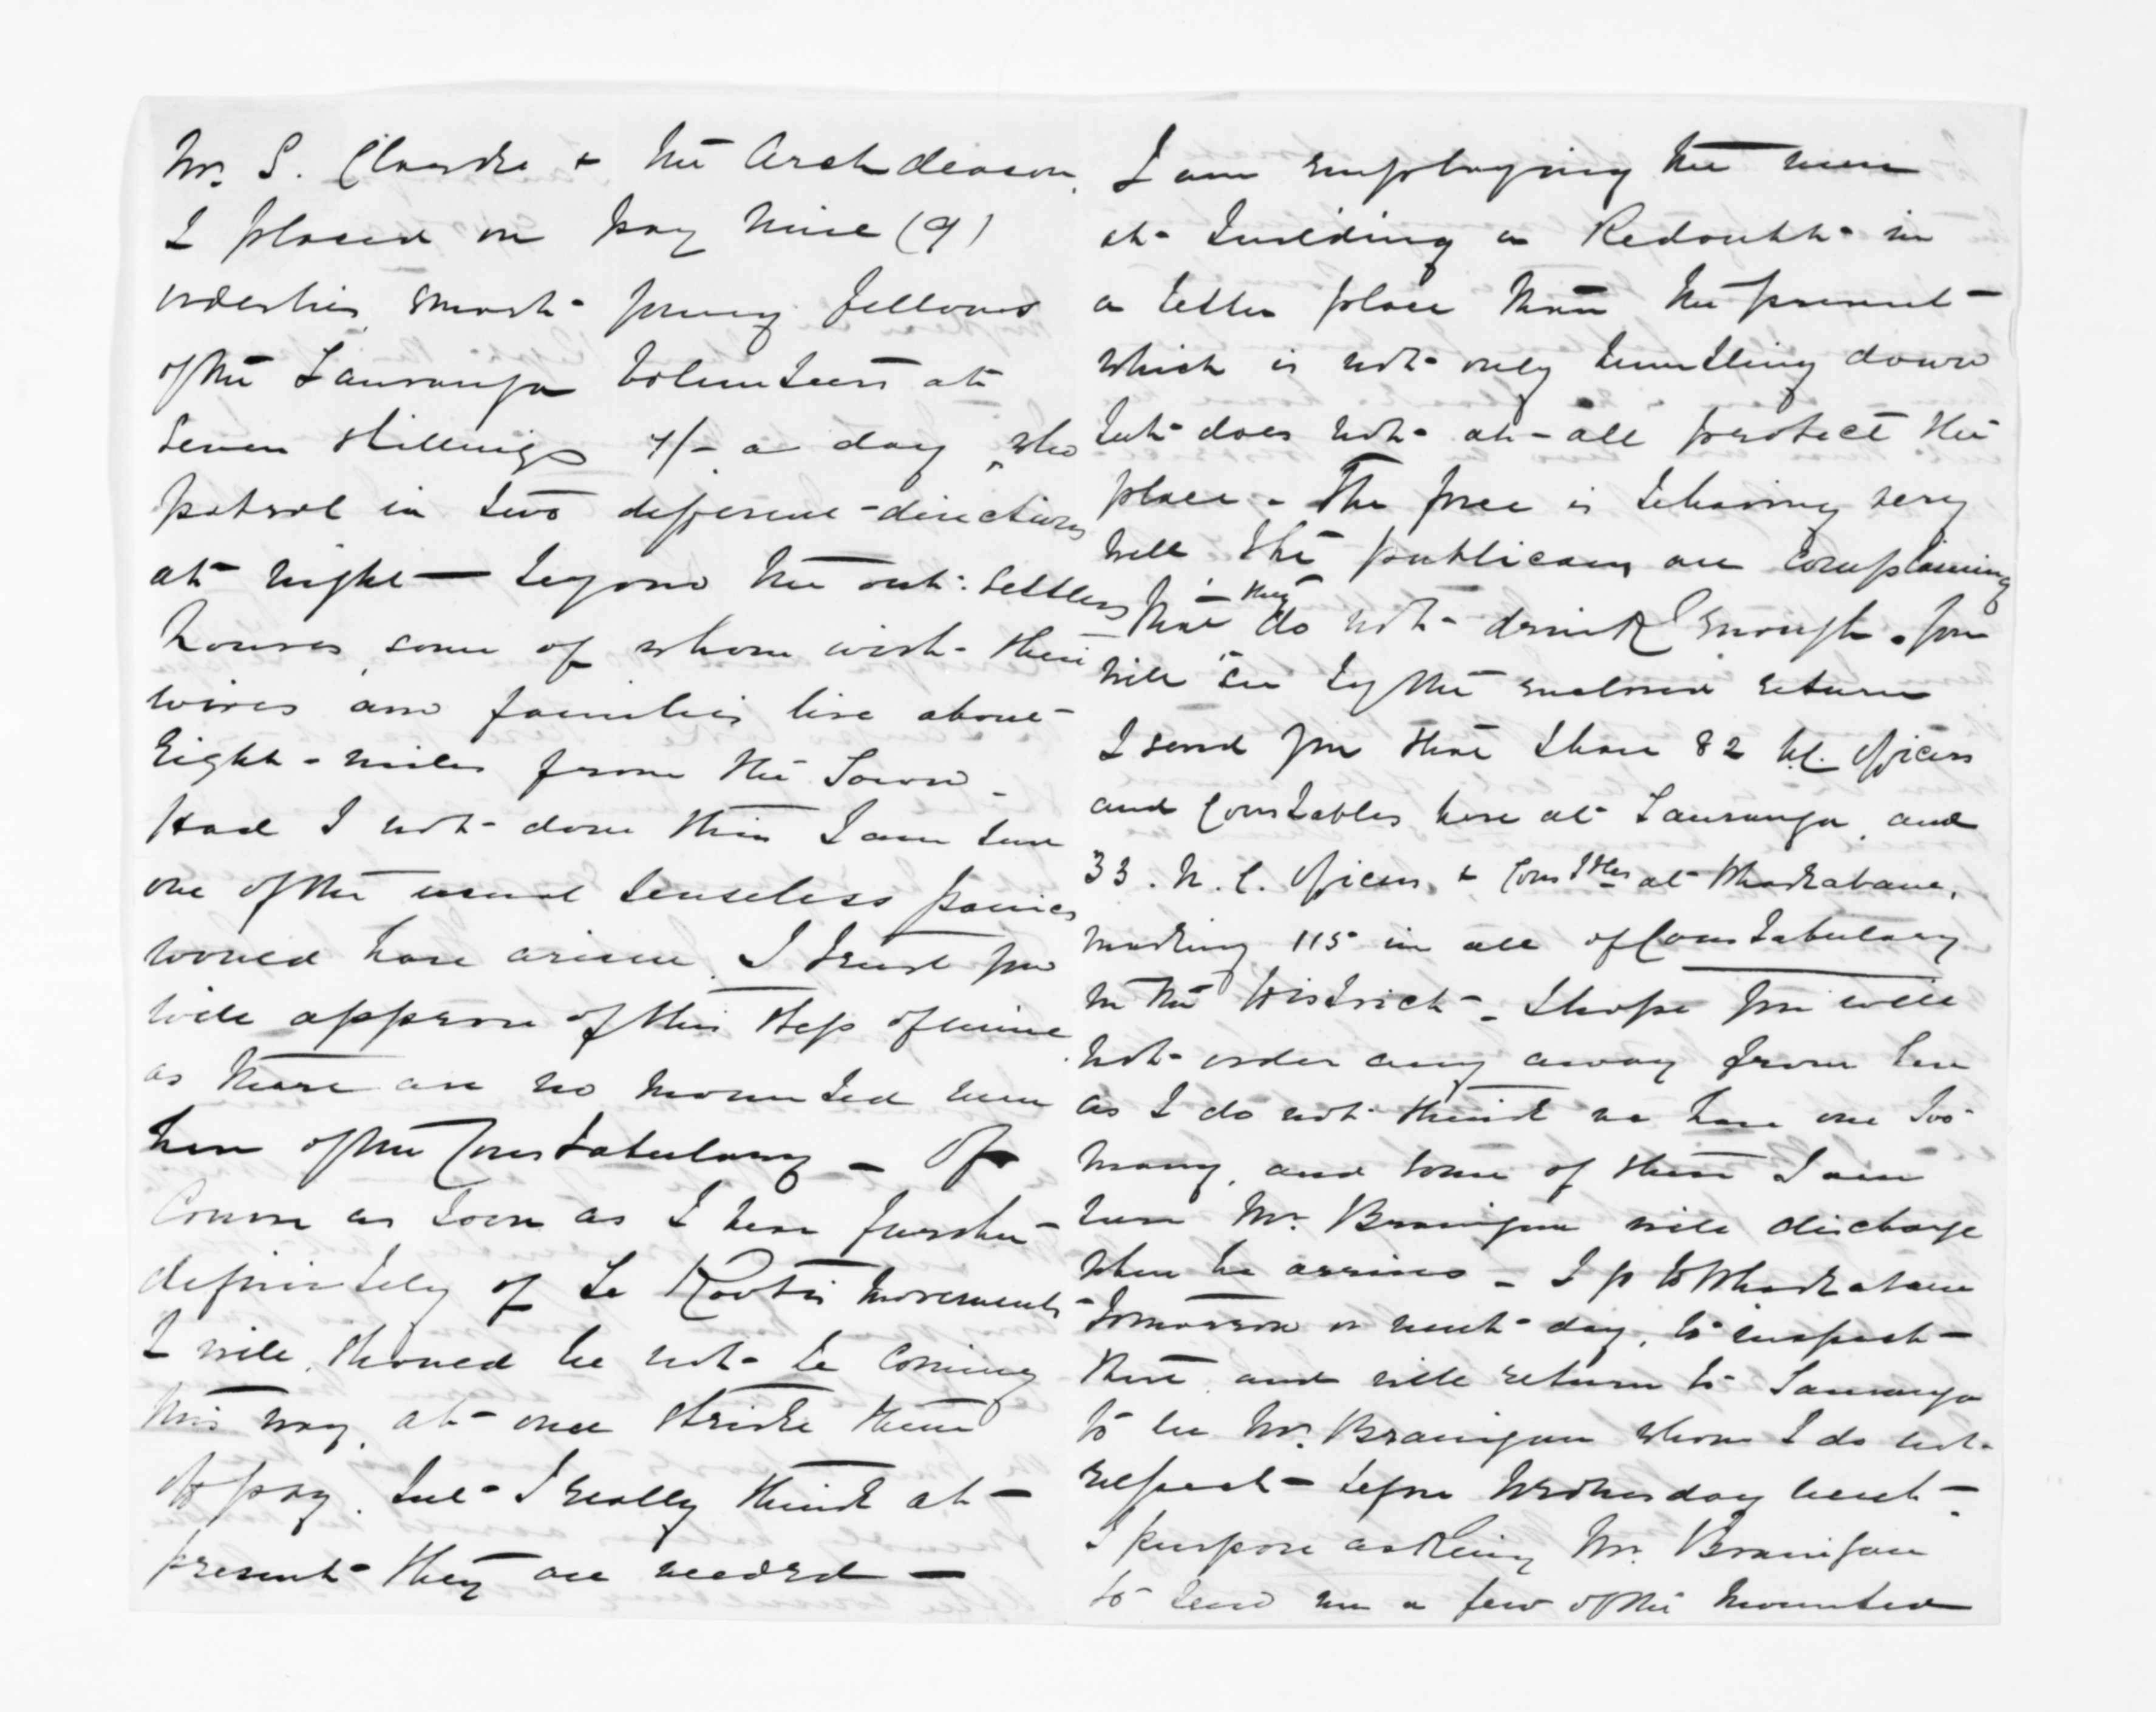 Mr. S. Clarke + the Archdeacon.
I placed on pay nine (9)
orderlies, smart young fellows
of the Tauranga Volunteers at
Seven shillings 7/- a day, who
patrol in two different directions
at night — beyond the out: settlers
houses, some of whom with their
wives and families live about
Eight miles from the Town -
Had I not done this I am sure
one of the usual senseless panics
would have arisen. I trust you
will approve of this step of mine
as there are no mounted men
here of the Constabulary - Of
Course as soon as I hear further
definitely of Te Kooti's movements
I will, should he not be coming
this way, at once strike them
off pay. but I really think at
present they are needed —
I am employing the men
at building a Redoubt in
a better place than the present
which is not only tumbling down
but does not at all protect the
place - The force is behaving very
well the publicans are complaining
that they do not drink enough. You
will see by the enclosed return
I send you that I have 82 N.C. Officers
and Constables here at Tauranga, and
33. N.C. Officers, + Constbles at Whakatane,
making 115 in all of Constabulary
in the District - I hope you will
not order any away from here
as I do not think we have one too
many, and some of these I am
sure Mr. Branigan will discharge
when he arrives - I go to Whakatane
tomorrow or next day, to inspect
there and will return to Tauranga
to see Mr. Branigan whom I do not
expect before Wednesday next -
I purpose asking Mr. Branigan
to send me a few of the mounted